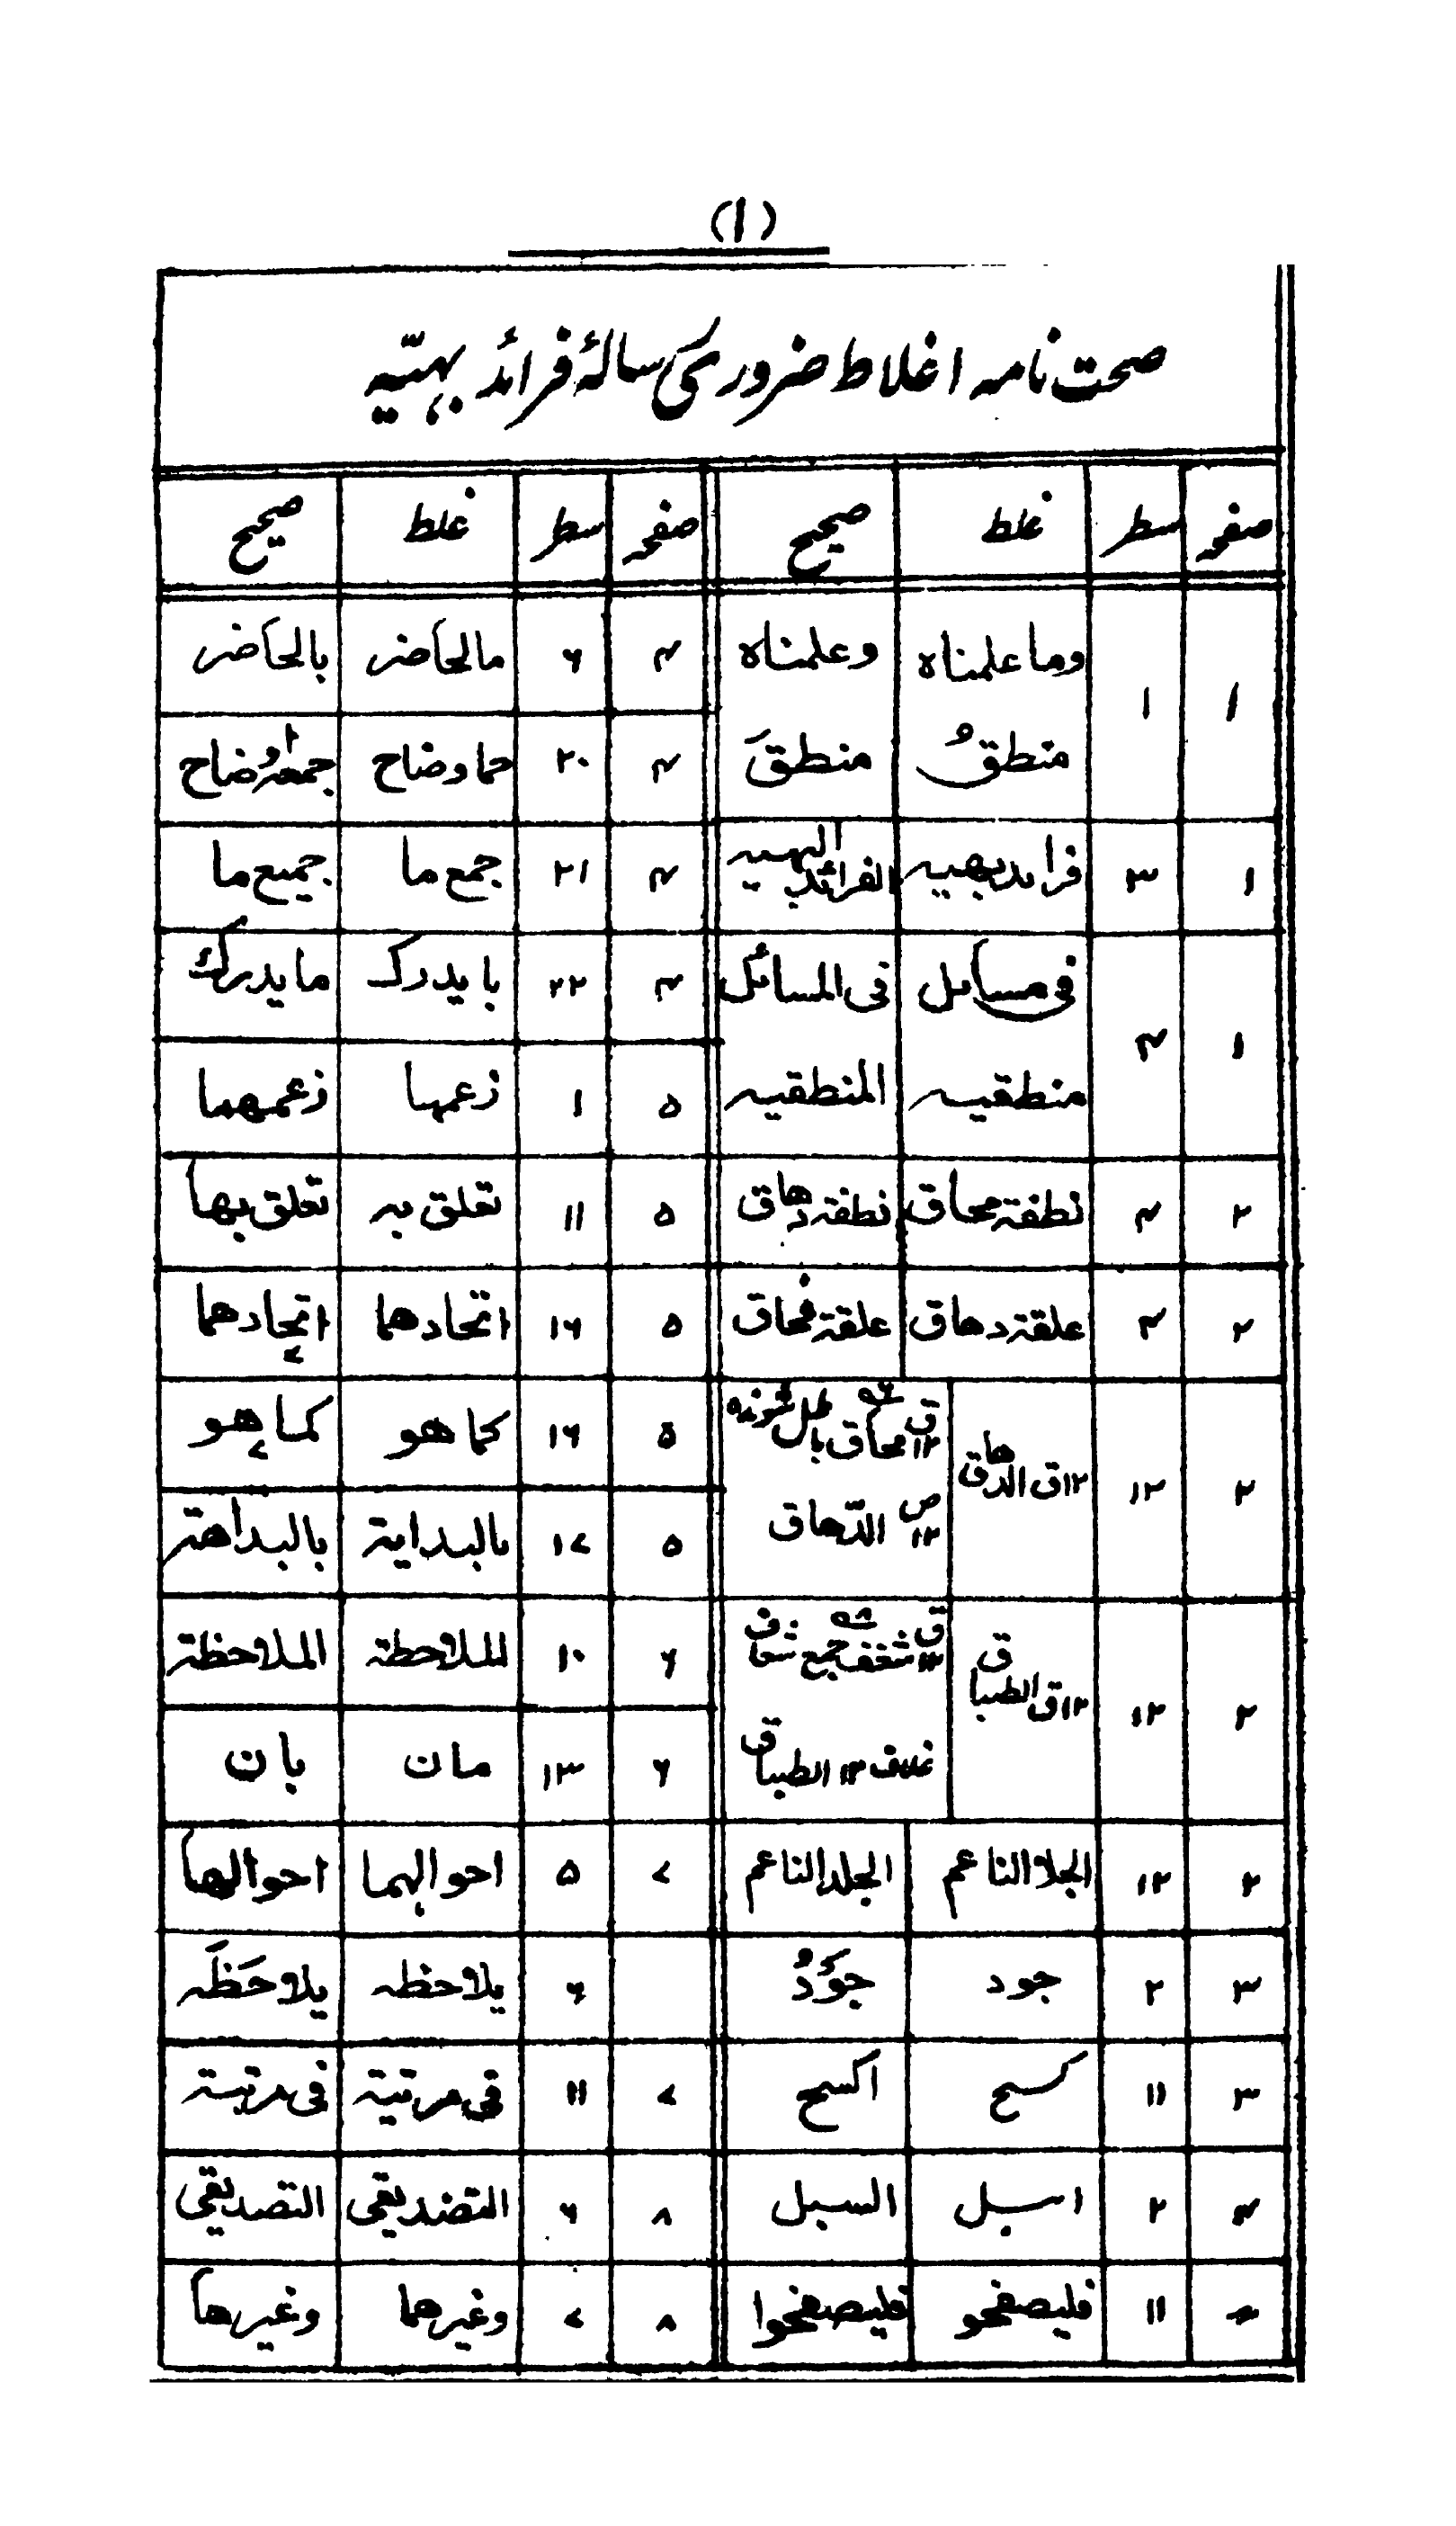 (۱)
صحت نامہ اغلاط ضروری رسالۂ فرائد بہیّہ
صفحہ سطر غلط صحیح صفحہ سطر غلط صحیح
۱ ۱ وما علمناہ وعلمناہ ۴ ۶ مالحاضر بالحاضر
منطقُ منطقَ ۴ ۲۰ حما وضاح
۱ ۳ فراید بھیہ الفرائد البھیہ ۴ ۲۱ جمع ما جمیع ما
۱ ۴ فی مسایل فی المسائل ۴ ۲۲ با یدرک ما یدرک
منطقیہ المنطقیہ ۵ ۱ زعمہا زعمھما
۲ ۴ نطفة محاق نطفة دھاق ۵ ۱۱ تعلق بہ تعلق بھا
۲ ۴ علقة دھاق علقة محاق ۵ ۱۶ اتحادھما اتحادھما
۲ ۱۲ ۱۲ ق الدھاق ق ۱۲ محاق باطل شوندہ ۵ ۱۶ کما ھو کما ھو
ص ۱۲ الدّھاق ۵ ۱۷ بالبدایة بالبداھة
۲ ۱۲ ۱۲ ق الطباق ق ۱۲ شغف جمع شغاف ۶ ۱۰ للملاحطة الملاحظة
غلاف ۱۲ الطباق ۶ ۱۳ مان بان
۲ ۱۲ الجلا الناعم الجلد الناعم ۷ ۵ احوالہما احوالھا
۳ ۲ جود جوَدُ ۶ یلاحظہ یلاحَظَہ
۳ ۱۱ کسح اکسح ۷ ۱۱ فی مرتیة فی مرتبة
۴ ۲ اسبل السبل ۸ ۶ التضدیقی التصدیقی
۴ ۱۱ فلیصفحو فلیصفحوا ۸ ۷ وغیرھما وغیرھا